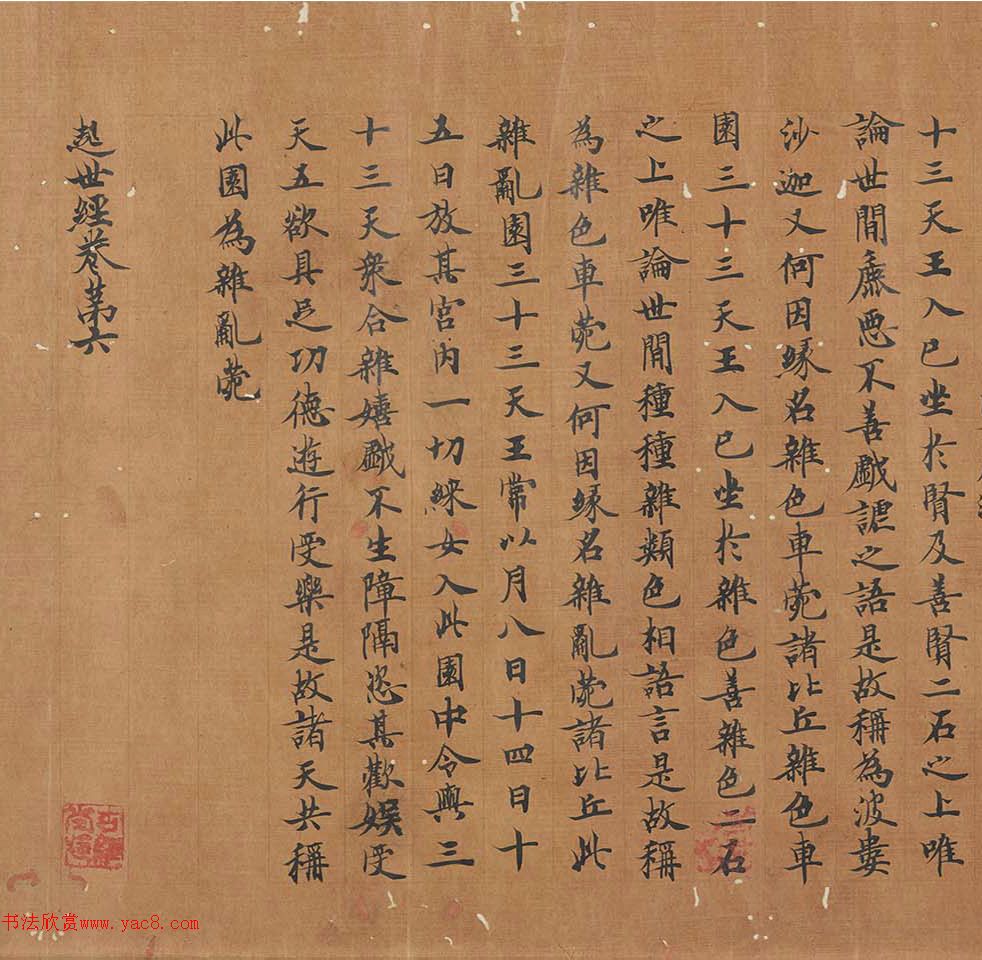 十三天王入已坐於賢及善賢二石之上唯
論世間麁惡不善戲謔之語是故稱為波婁
沙迦又何因緣名雜色車苑諸比丘雜色車
園三十三天王入已坐於雜色善雜色二石
之上唯論世間種種雜類色相語言是故稱
為雜色車苑又何因緣名雜亂苑諸比丘此
雜亂園三十三天王常以月八日十四日十
五日放其宮內一切婇女入此園中令與三
十三天眾合雜嬉戲不生障隔恣其歡娛受
天五欲具足功德遊行受樂是故諸天共稱
此園為雜亂苑
起世經卷第六
书法欣赏www.yac8.com